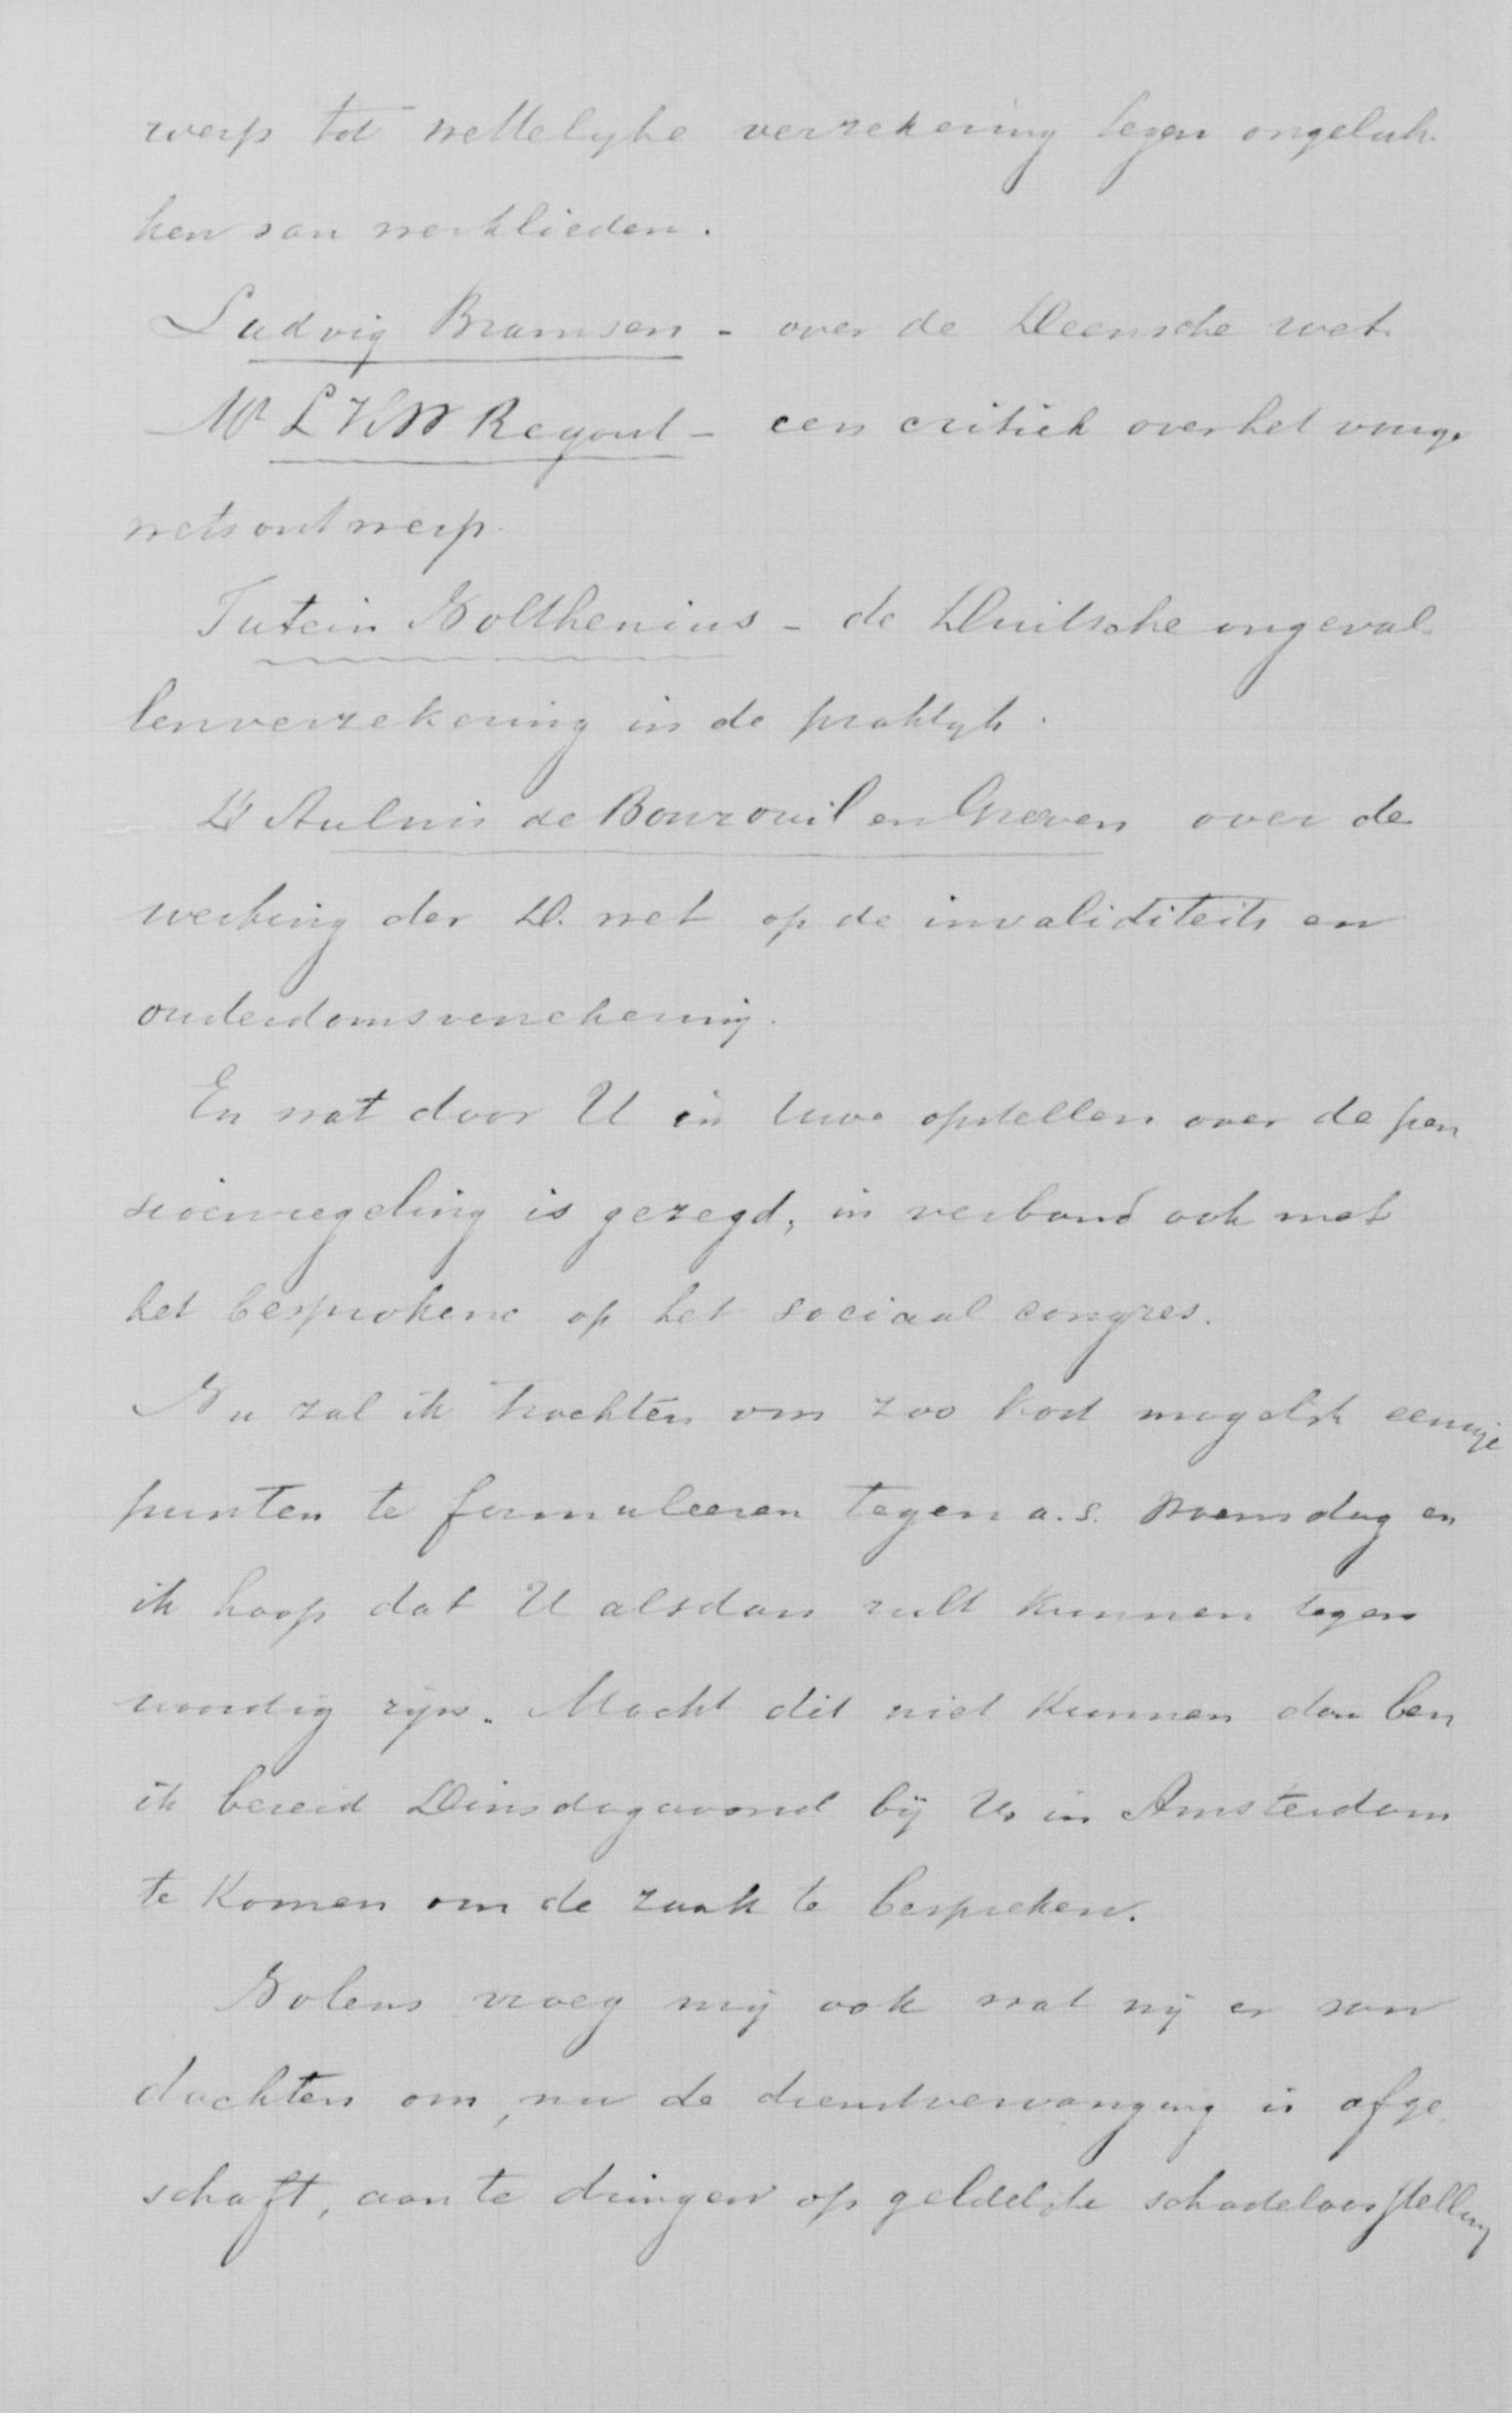 werp tot wettelyke verzekering tegen ongeluk-
ken van werklieden.
Ludvig Bramsen - over de Deensche wet.
Mr L H W Regout - een critiek over het vorige
wetsontwerp.
Tutein Nolthenius - de Duitsche ongeval-
lenverzekering in de praktyk.
D'Aulnis de Bourouil en Greven over de
werking der D. wet op de invaliditeits en
ouderdomsverzekering.
En wat door U in Uwe opstellen over de pen
sioenregeling is gezegd, in verband ook met
het besprokene op het sociaal congres.
Nu zal ik trachten om zoo kort mogelijk eenige
punten te formuleeren tegen a.s. Woensdag en
ik hoop dat U alsdan zult kunnen tegen
woordig zijn. Mocht dit niet kunnen dan ben
ik bereid Dinsdagavond bij U in Amsterdam
te komen om de zaak te bespreken.
Nolens vroeg mij ook wat wij er van
dachten om, nu de dienstvervanging is afge
schaft, aan te dringen op geldelijke schadeloosstelling